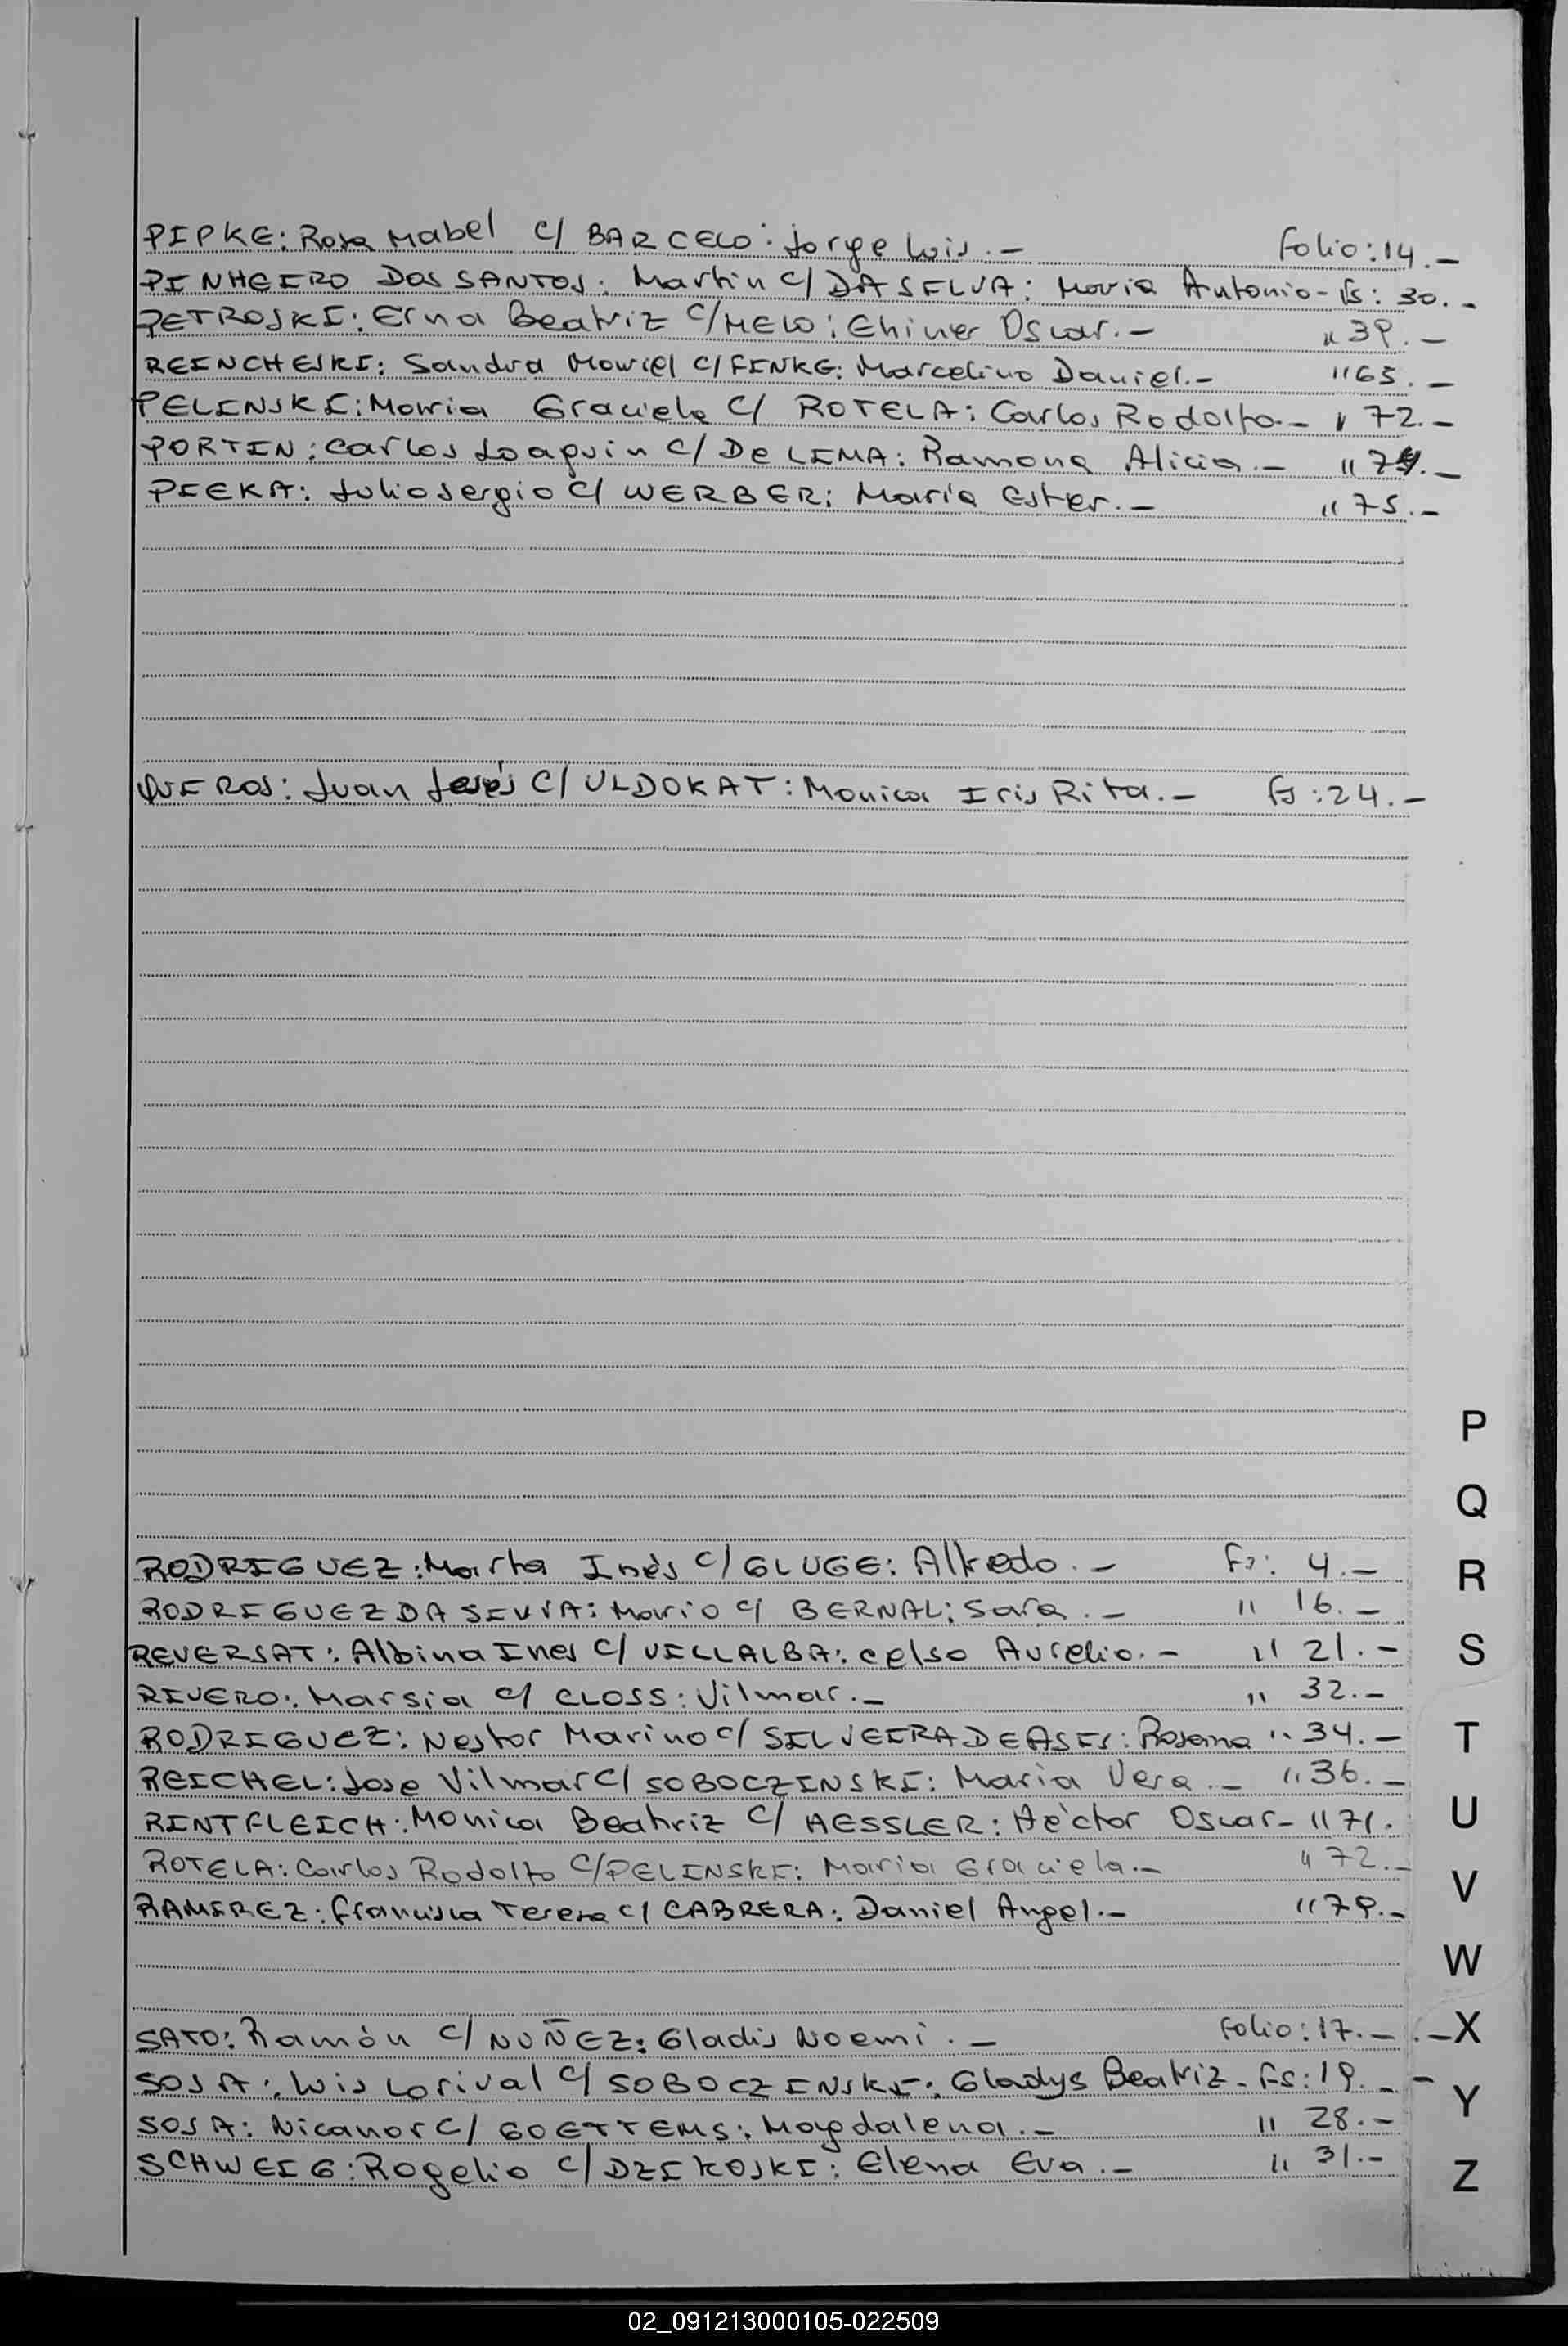 PIPKE: Rosa Mabel c/ BARCELO: Jorge Luis.— Folio: 14.—
PINHEIRO DOS SANTOS: Martin c/ DA SILVA: Maria Antonio- Fs: 30.-
PETROSKI: Erna Beatriz c/ MELO: Ehiner Oscar.— " 39.—
REINCHESKI: Sandra Mariel c/ FINKE: Marcelino Daniel.- " 65.—
PELINSKI: Maria Graciela c/ ROTELA: Carlos Rodolfo.- " 72.-
PORTIN: Carlos Joaquin c/ De LIMA: Ramona Alicia.- " 74.—
PIEKA: Julio Sergio c/ WERBER: María Ester.— " 75.-
QUIROS: Juan Jesús c/ ULDOKAT: Monica Iris Rita.- Fs: 24.—
RODRIGUEZ: Marta Inés c/ GLUGE: Alfredo.- Fs: 4.-
RODRIGUEZ DA SILVA: Mario c/ BERNAL: Sara.- " 16.-
REVERSAT: Albina Ines c/ VILLALBA: Celso Aurelio.- " 21.-
RIVERO: Marsia c/ CLOSS: Vilmar.- " 32.-
RODRIGUEZ: Nestor Marino c/ SILVEIRA DE ASIS: Rosana " 34.-
REICHEL: Jose Vilmar c/ SOBOCZINSKI: Maria Vera.- " 36.-
RINTFLEICH: Monica Beatriz c/ HESSLER: Héctor Oscar- " 71.
ROTELA: Carlos Rodolfo c/ PELINSKI: Maria Graciela.- " 72.-
RAMIREZ: Francisca Teresa c/ CABRERA: Daniel Angel.- " 79.-
SATO: Ramón c/ NUÑEZ: Gladis Noemi.— Folio: 17.—.—
SOSA: Luis Lorival c/ SOBOCZINSKI: Gladys Beatriz- Fs: 19.-
SOSA: Nicanor c/ GOETTEMS: Magdalena.- " 28.-
SCHWEIG: Rogelio c/ DZIKOSKI: Elena Eva.- " 31.-
P
Q
R
S
T
U
V
W
X
Y
Z
02_091213000105-022509